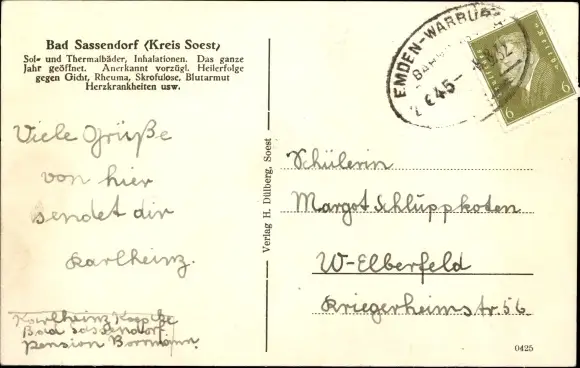 Bad Sassendorf (Kreis Soest)
Sol- und Thermalbäder, Inhalationen. Das ganze
Jahr geöffnet. Anerkannt vorzügl. Heilerfolge
gegen Gicht, Rheuma, Skrofulose, Blutarmut
Herzkrankheiten usw.
Viele Grüße
von hier
sendet dir
Karlheinz.
Karlheinz
Bad Sassendorf.
Pension Bormann.
Verlag H. Dülberg, Soest
EMDEN-WARBURG
6 6
Schülerin
Margot Schluppkoten
W-Elberfeld
Kriegerheimstr. 56
0425